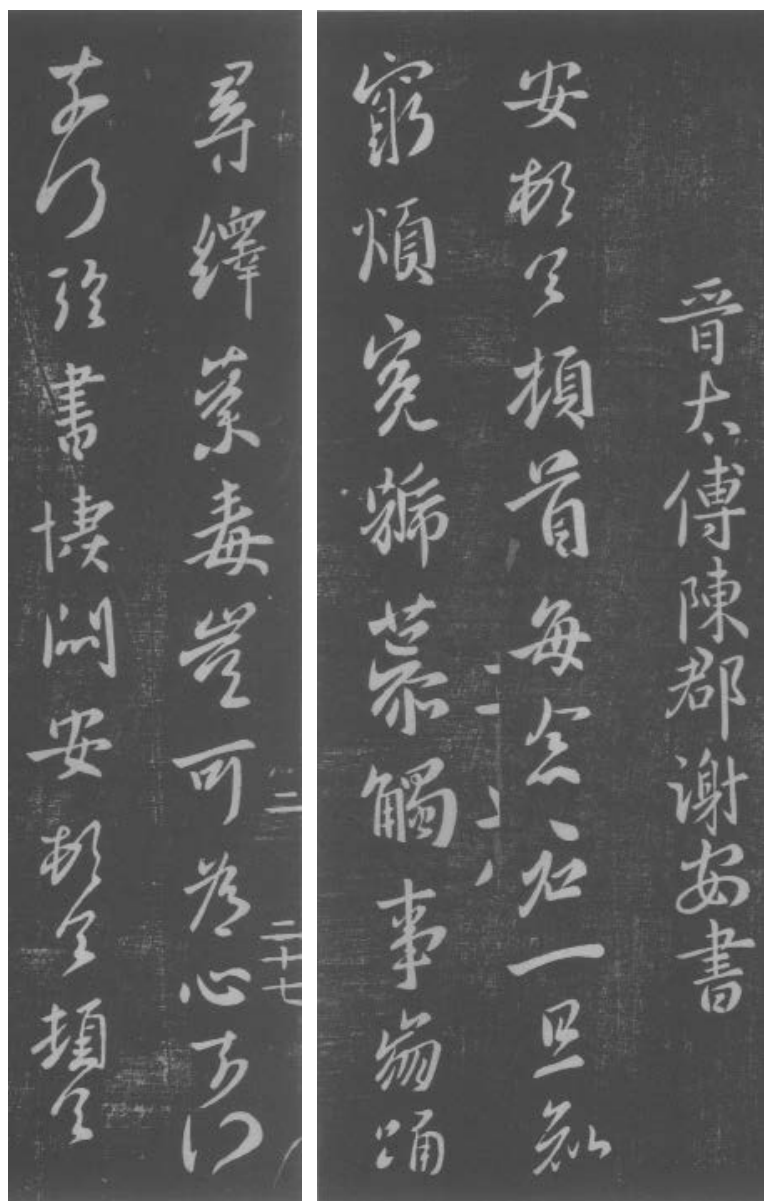 晉太傅陳郡謝安書
安頓首頓首每念君一旦知
窮煩冤號慕觸事崩踊
尋繹荼毒豈可為心奈何
奈何臨書悽悶安頓首頓首
二 二十七